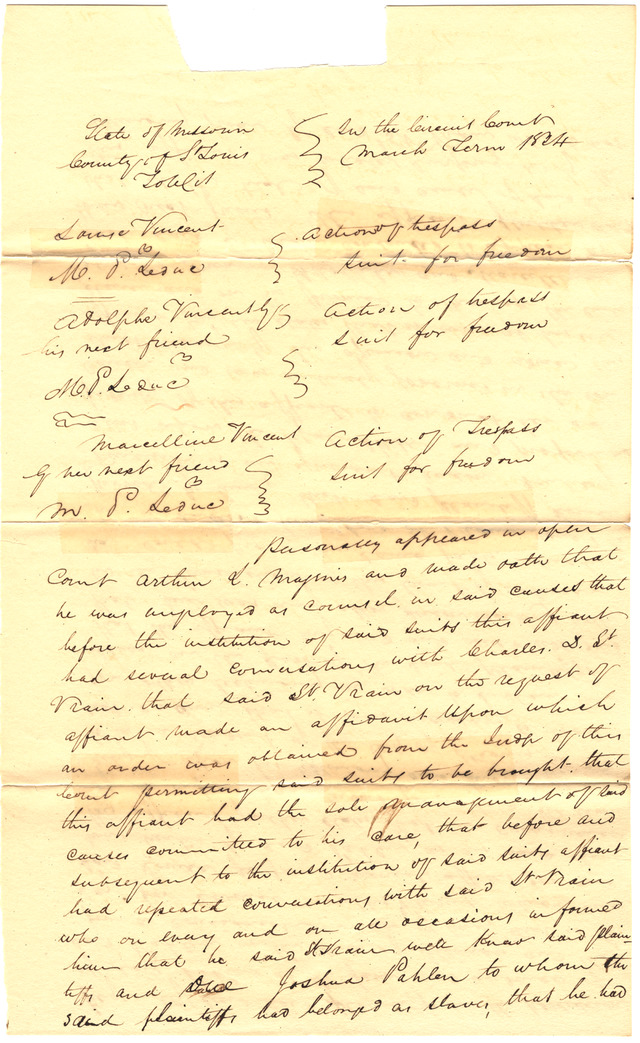 State of Missouri
County of St Louis
Towit
In the Circuit Court
March Term 1824
Louise Vincent
vs
M. P. Leduc
Action of trespass
suit for freedom
Adolphe Vincent by
his next friend
vs
M. P. Leduc
Action of trespass
suit for freedom
Marcelline Vincent
by her next friend
vs
M. P. Leduc
Action of Trespass
suit for freedom
Personally appeared in open
Court Arthur L. Maginis and made oath that
he was employed as counsel in said causes that
before the institution of said suits this affiant
had several conversations with Charles D. St.
Vrain. that said St. Vrain on the request of
affiant made an affidavit upon which
an order was obtained from the Judge of this
Court permitting said suits to be brought. that
this affiant had the sole management of said
causes committed to his care, that before and
subsequent to the institution of said suits affiant
had repeated conversations with said St Vrain
who on every and on all occasions informed
him that he said St Vrain well knew said plain-
tiffs and Joshua Pahlen to whom the
said plaintiffs had belonged as slaves, that he had